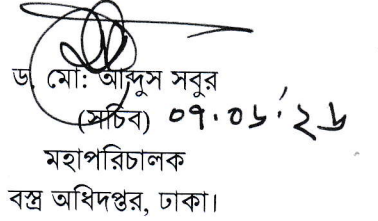 ড. মো: আব্দুস সবুর
(সচিব) ০৭.০১.২৬
মহাপরিচালক
বস্ত্র অধিদপ্তর, ঢাকা।